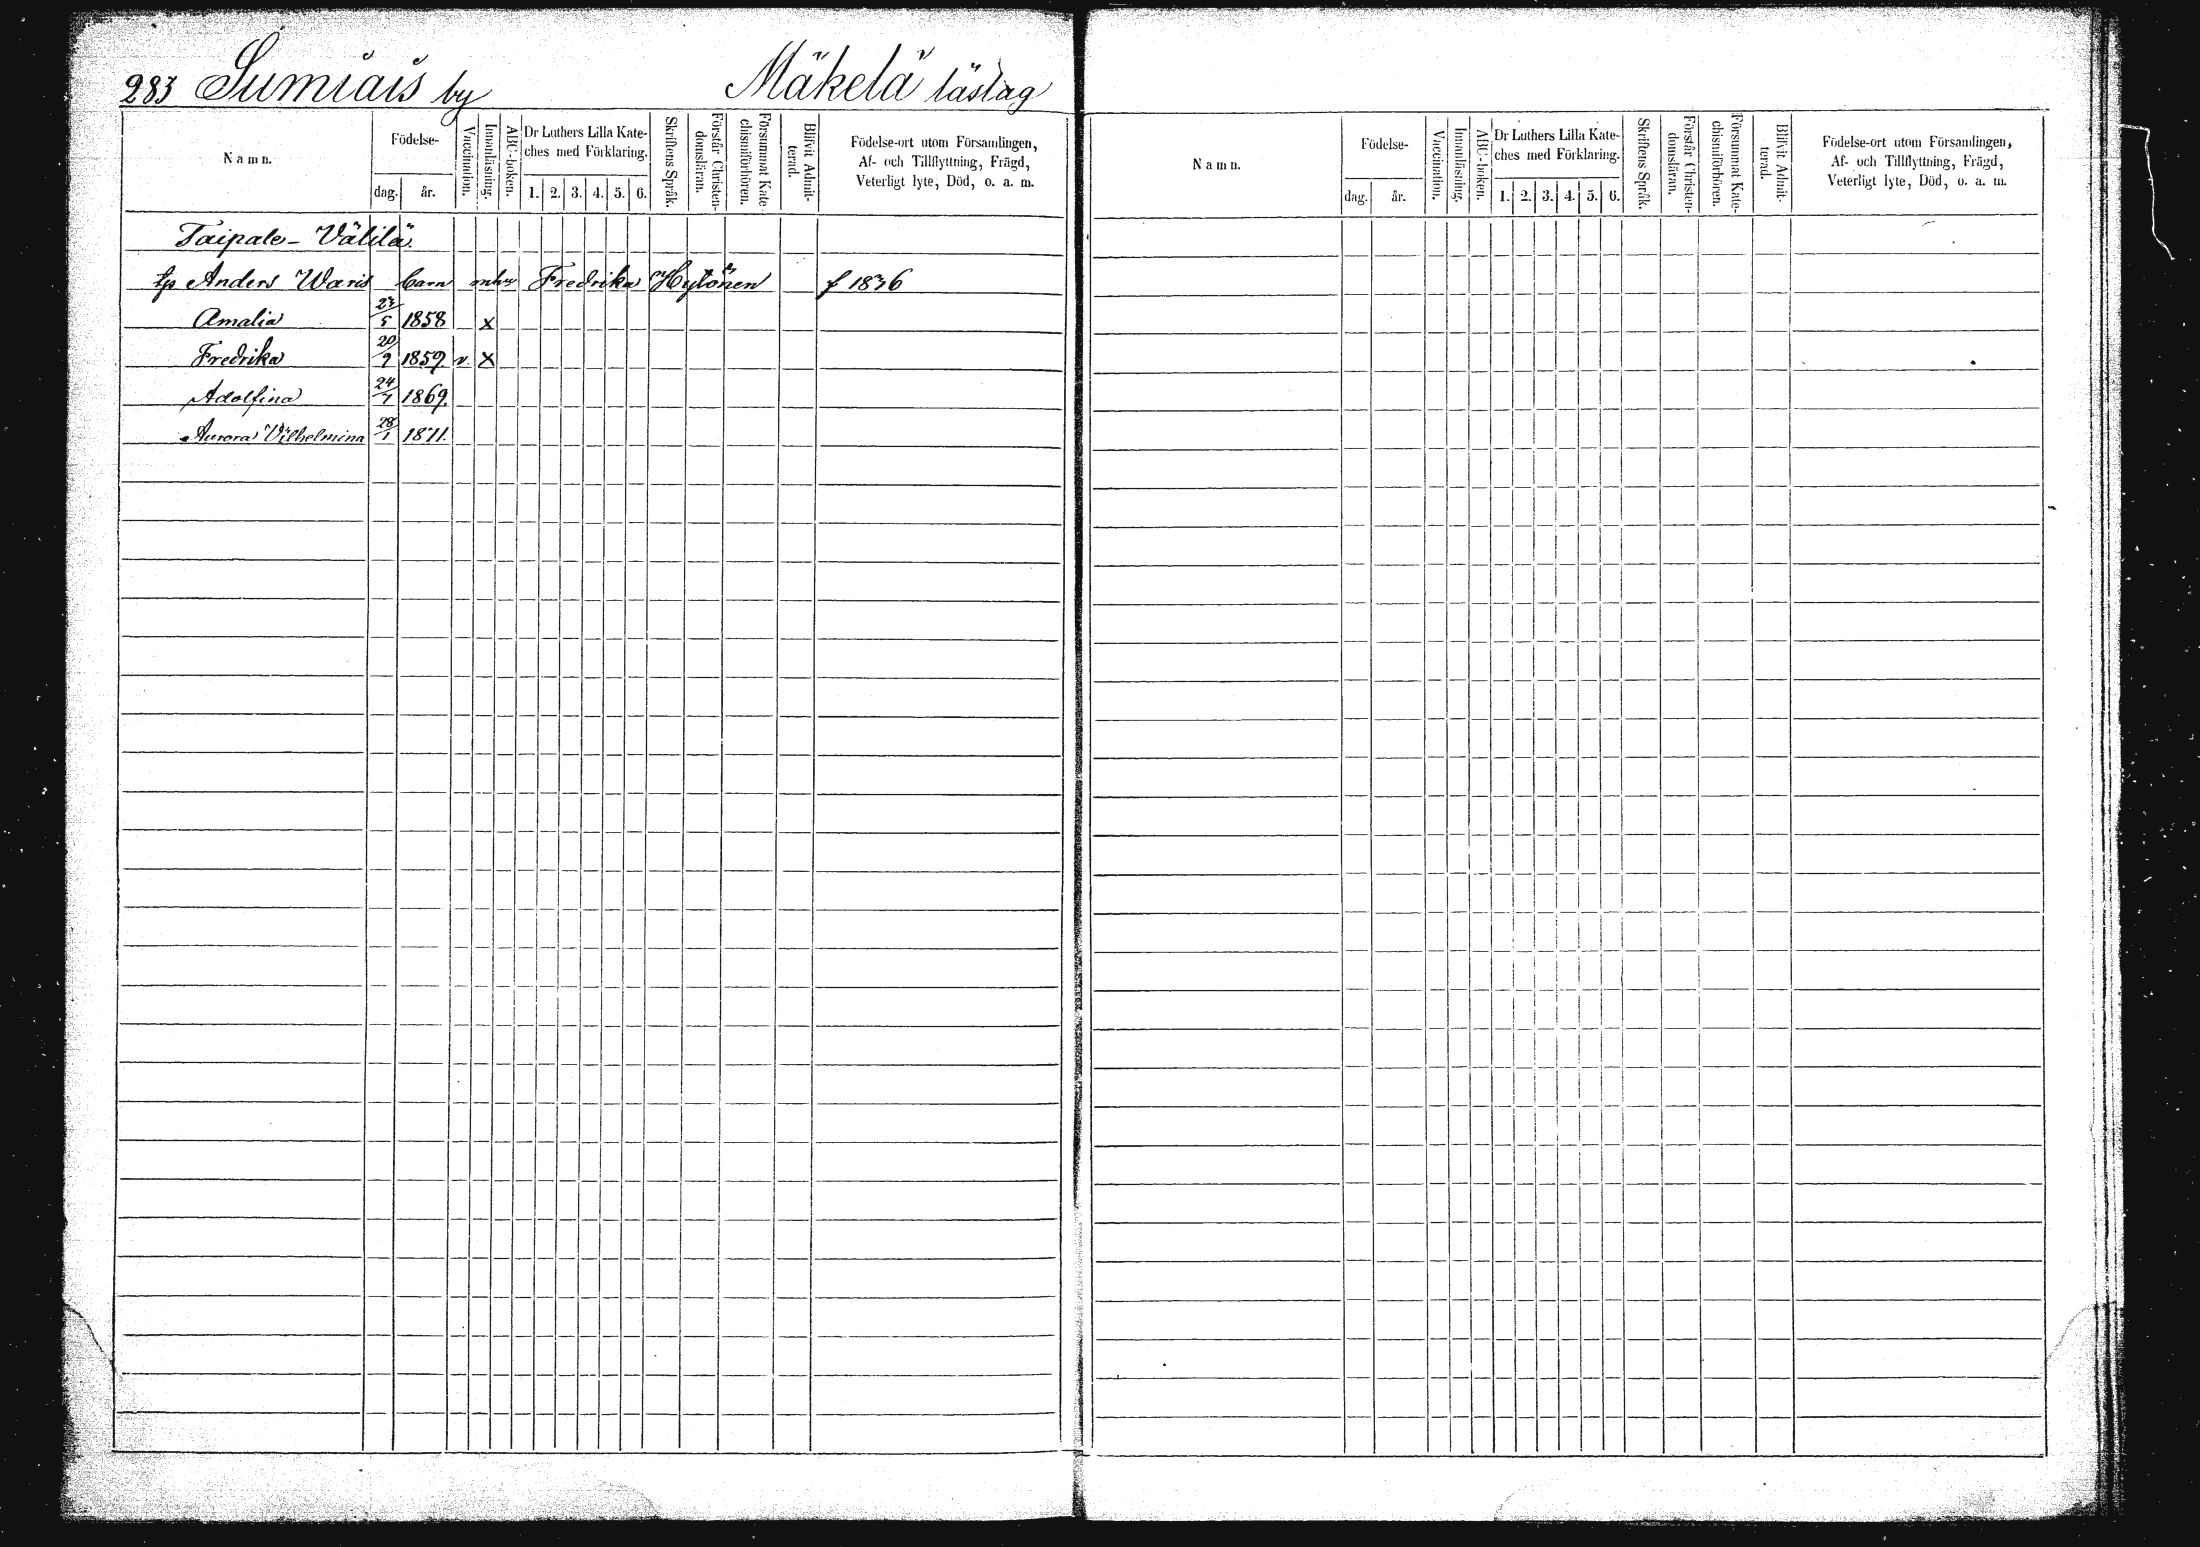 283 Sumiais by Mäkelä läslag
Namn.
Födelse-
dag. år.
Vaccination.
Innanläsning.
ABC-boken.
Dr Luthers Lilla Kate-
ches med Förklaring.
1. 2. 3. 4. 5. 6.
Skriftens Språk.
Förstår Christen-
domsläran.
Försummat Kate-
chismiförhören.
Blifvit Admit-
terad.
Födelse-ort utom Församlingen,
Af- och Tillflyttning, Frägd,
Veterligt lyte, Död, o. a. m.
Taipale-Välilä.
tp Anders Waris barn mhu Fredrika Hytönen f 1836
Amalia 23/5 1858 x
Fredrika 20/9 1859. v. x
Adolfina 24/7 1869.
Aurora Vilhelmina 28/1 1871.
Namn.
Födelse-
dag. år.
Vaccination.
Innanläsning.
ABC-boken.
Dr Luthers Lilla Kate-
ches med Förklaring.
1. 2. 3. 4. 5. 6.
Skriftens Språk.
Förstår Christen-
domsläran.
Försummat Kate-
chismiförhören.
Blifvit Admit-
terad.
Födelse-ort utom Församlingen,
Af- och Tillflyttning, Frägd,
Veterligt lyte, Död, o. a. m.